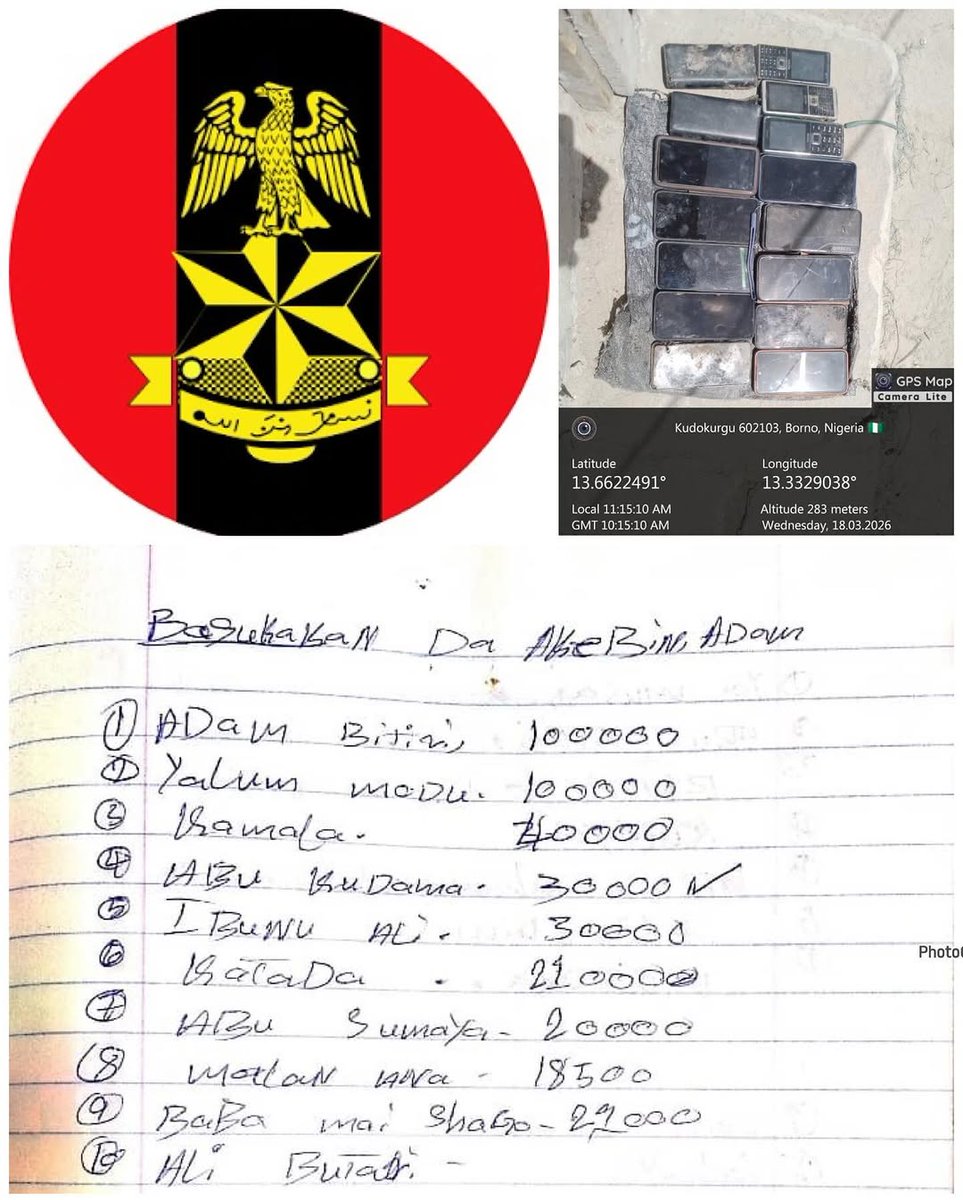 GPS Map
Camera Lite
Kudokurgu 602103, Borno, Nigeria
Latitude
13.6622491°
Longitude
13.3329038°
Local 11:15:10 AM
GMT 10:15:10 AM
Altitude 283 meters
Wednesday, 18.03.2026
BaSukakaN Da AkeBin ADam
① ADam Bitiri 100000
② Yakum modu. 100000
③ Kamala. 40000
④ ABu KuDama. 30000 N
⑤ IBuNu Ali. 30000
⑥ KataDa .
⑦ ABu Sumaya - 20000
⑧ mallan - 18500
⑨ BaBa mai ShaGo -
⑩ ALi -